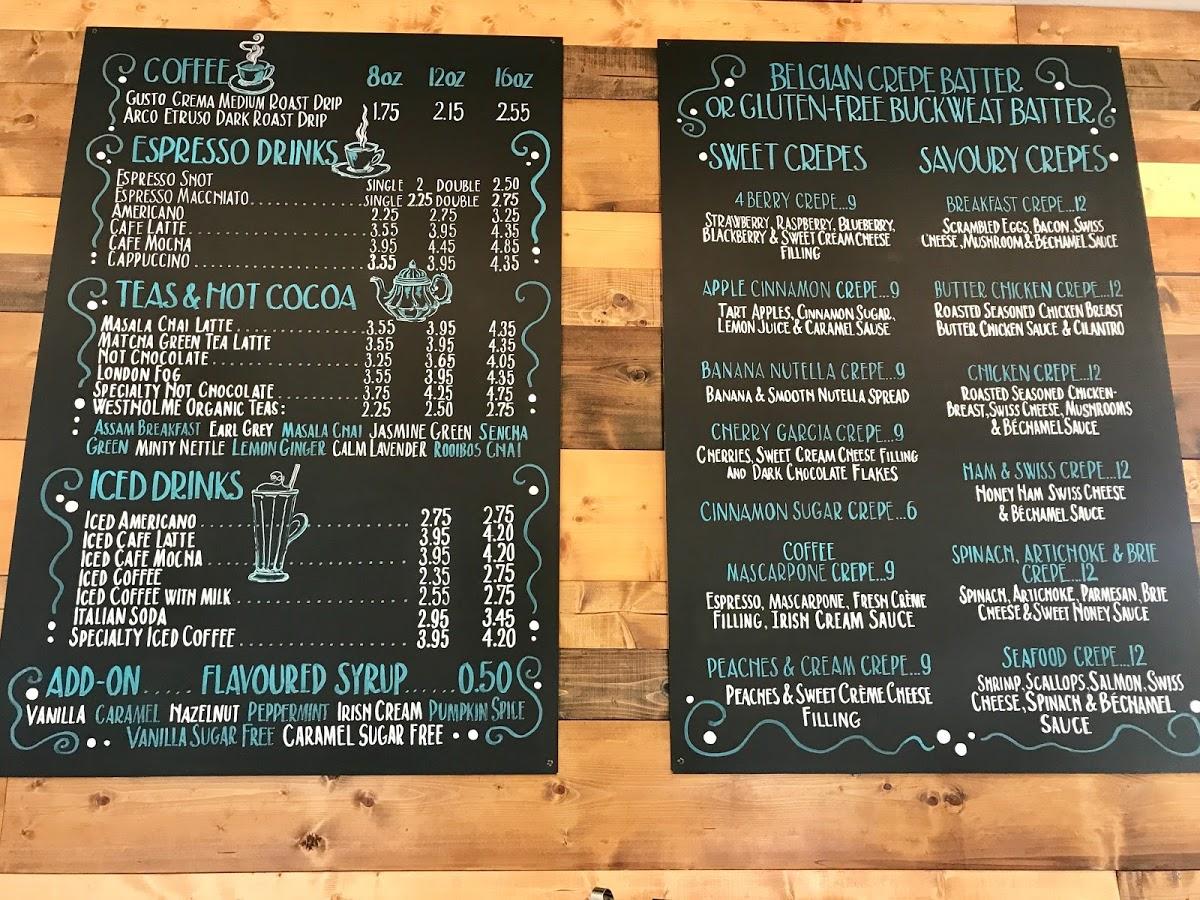 COFFEE 8oz 12oz 16oz
GUSTO CREMA MEDIUM ROAST DRIP
ARCO ETRUSO DARK ROAST DRIP 1.75 2.15 2.55
ESPRESSO DRINKS
ESPRESSO SHOT SINGLE 2 DOUBLE 2.50
ESPRESSO MACCHIATO.................SINGLE 2.25 DOUBLE 2.75
AMERICANO 2.25 2.75 3.25
CAFE LATTE......................... 3.55 3.95 4.35
CAFE MOCHA 3.95 4.45 4.85
CAPPUCCINO......................... 3.55 3.95 4.35
TEAS & HOT COCOA
MASALA CHAI LATTE.................. 3.55 3.95 4.35
MATCHA GREEN TEA LATTE 3.55 3.95 4.35
HOT CHOCOLATE..................... 3.25 3.65 4.05
LONDON FOG 3.55 3.95 4.35
SPECIALTY HOT CHOCOLATE........... 3.75 4.25 4.75
WESTHOLME ORGANIC TEAS: 2.25 2.50 2.75
ASSAM BREAKFAST EARL GREY MASALA CHAI JASMINE GREEN SENCHA
GREEN MINTY NETTLE LEMON GINGER CALM LAVENDER ROOIBOS CHAI
ICED DRINKS
ICED AMERICANO....................... 2.75 2.75
ICED CAFE LATTE 3.95 4.20
ICED CAFE MOCHA...................... 3.95 4.20
ICED COFFEE 2.35 2.75
ICED COFFEE WITH MILK................ 2.55 2.75
ITALIAN SODA 2.95 3.45
SPECIALTY ICED COFFEE................ 3.95 4.20
ADD-ON..... FLAVOURED SYRUP.....0.50
VANILLA CARAMEL HAZELNUT PEPPERMINT IRISH CREAM PUMPKIN SPICE
VANILLA SUGAR FREE CARAMEL SUGAR FREE
BELGIAN CREPE BATTER
OR GLUTEN-FREE BUCKWEAT BATTER
SWEET CREPES
4 BERRY CREPE...9
STRAWBERRY, RASPBERRY, BLUEBERRY,
BLACKBERRY & SWEET CREAM CHEESE
FILLING
APPLE CINNAMON CREPE...9
TART APPLES, CINNAMON SUGAR,
LEMON JUICE & CARAMEL SAUSE
BANANA NUTELLA CREPE...9
BANANA & SMOOTH NUTELLA SPREAD
CHERRY GARCIA CREPE...9
CHERRIES, SWEET CREAM CHEESE FILLING
AND DARK CHOCOLATE FLAKES
CINNAMON SUGAR CREPE...6
COFFEE
MASCARPONE CREPE...9
ESPRESSO, MASCARPONE, FRESH CRÈME
FILLING, IRISH CREAM SAUCE
PEACHES & CREAM CREPE...9
PEACHES & SWEET CRÈME CHEESE
FILLING
SAVOURY CREPES
BREAKFAST CREPE...12
SCRAMBLED EGGS, BACON, SWISS
CHEESE, MUSHROOM & BÉCHAMEL SAUCE
BUTTER CHICKEN CREPE...12
ROASTED SEASONED CHICKEN BREAST
BUTTER CHICKEN SAUCE & CILANTRO
CHICKEN CREPE...12
ROASTED SEASONED CHICKEN-
BREAST, SWISS CHEESE, MUSHROOMS
& BÉCHAMEL SAUCE
HAM & SWISS CREPE...12
HONEY HAM SWISS CHEESE
& BÉCHAMEL SAUCE
SPINACH, ARTICHOKE & BRIE
CREPE...12
SPINACH, ARTICHOKE, PARMESAN, BRIE
CHEESE & SWEET HONEY SAUCE
SEAFOOD CREPE...12
SHRIMP, SCALLOPS, SALMON, SWISS
CHEESE, SPINACH & BÉCHAMEL
SAUCE